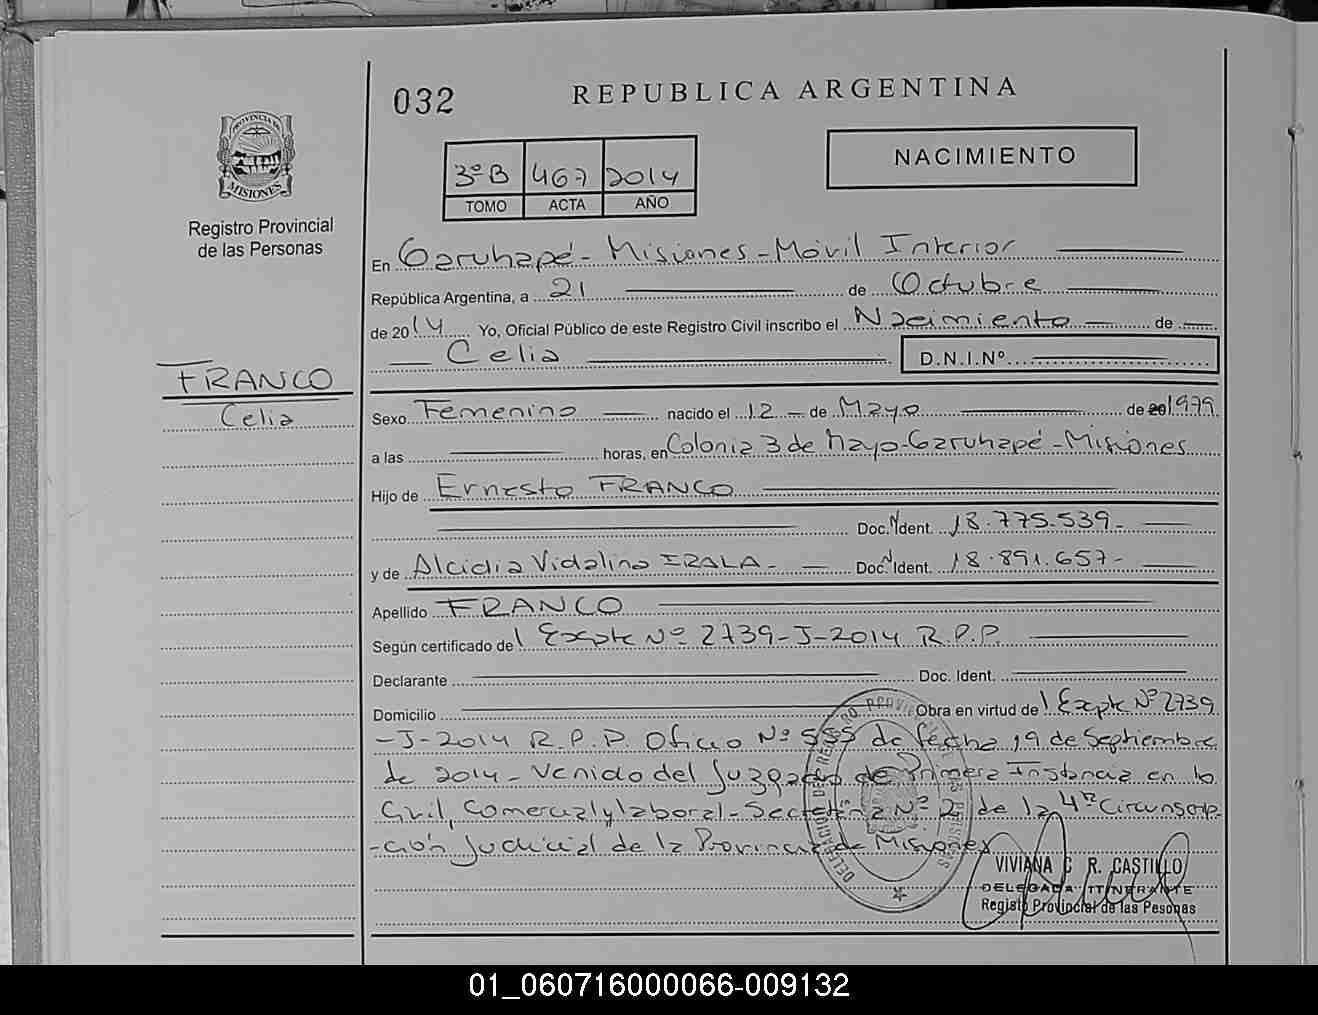 032
REPUBLICA ARGENTINA
PROVINCIA DE
MISIONES
Registro Provincial
de las Personas
3º B 467 2014
TOMO ACTA AÑO
NACIMIENTO
En Garuhapé - Misiones - Móvil Interior
República Argentina, a 21 de Octubre
de 2014 Yo, Oficial Público de este Registro Civil inscribo el Nacimiento de
Celia D.N.I.Nº
FRANCO
Celia
Sexo Femenino nacido el 12 de Mayo de 20 1979
a las horas, en Colonia 3 de Mayo - Garuhapé - Misiones
Hijo de Ernesto FRANCO
Doc. N Ident. 18.775.539-
y de Alcidia Vidalina IRALA - Doc. N Ident. 18.891.657-
Apellido FRANCO
Según certificado del Expte Nº 2739-J-2014 R.P.P.
Declarante Doc. Ident.
Domicilio Obra en virtud del Expte Nº 2739
-J-2014 R.P.P. Oficio Nº 555 de fecha 19 de Septiembre
de 2014 - Venido del Juzgado de Primera Instancia en lo
Civil, Comercial y laboral - Secretaria Nº 2 de la 4ª Circunscrip-
-ción Judicial de la Provincia de Misiones
VIVIANA C R. CASTILLO
DELEGADA ITINERANTE
Registo Provincial de las Pesonas
01_060716000066-009132